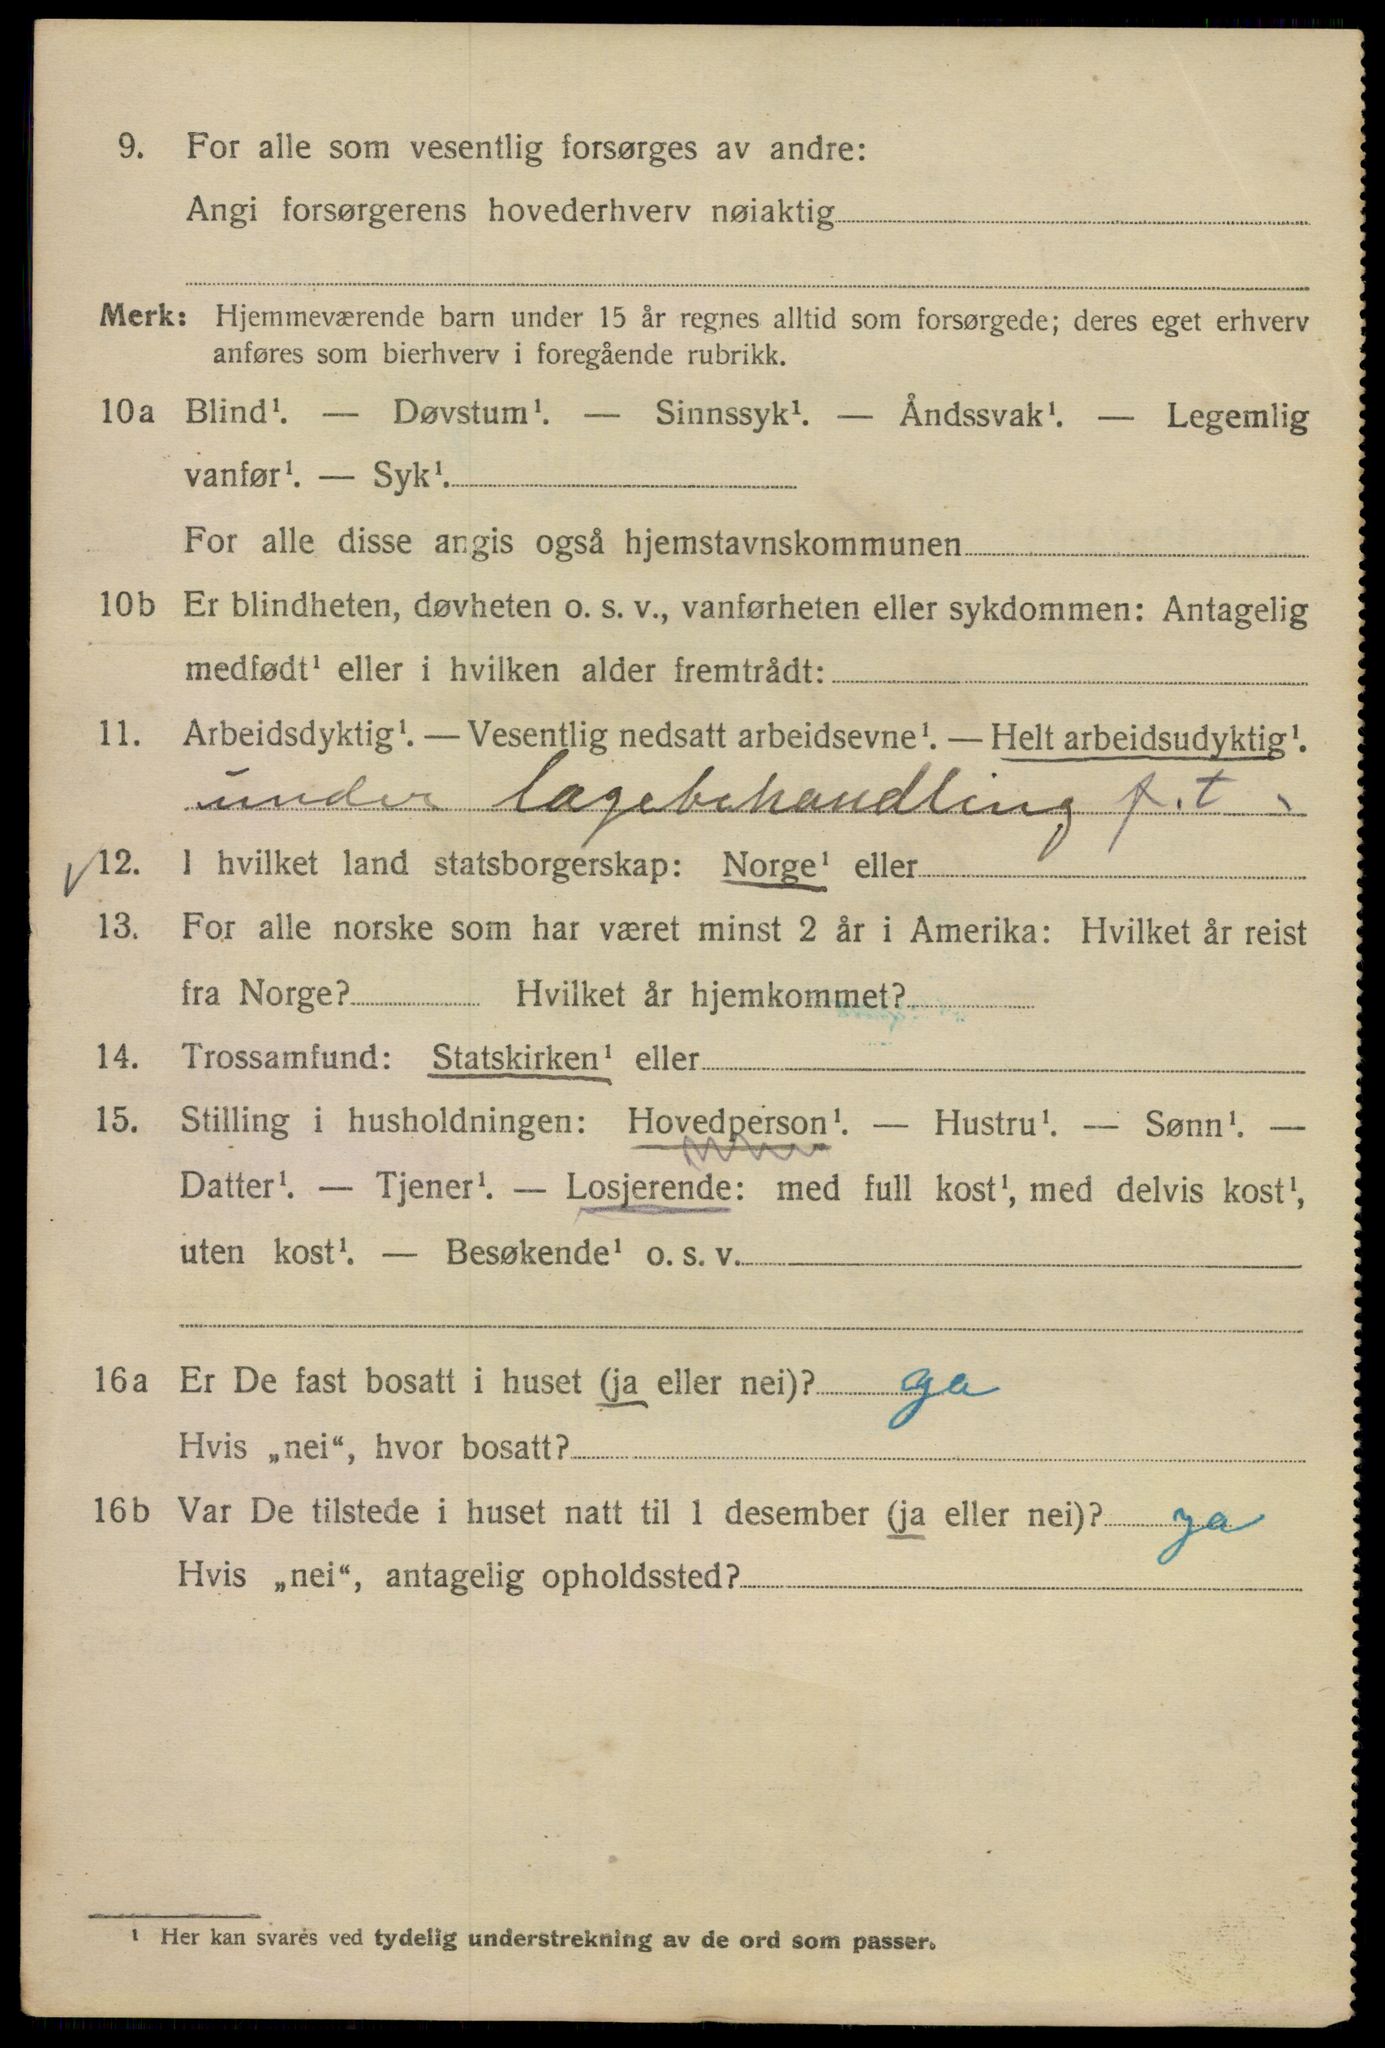 9. For alle som vesentlig forsørges av andre:
Angi forsørgerens hovederhverv nøiaktig
Merk: Hjemmeværende barn under 15 år regnes alltid som forsørgede; deres eget erhverv
anføres som bierhverv i foregående rubrikk.
10a Blind¹. — Døvstum¹. — Sinnssyk¹. — Åndssvak¹. — Legemlig
vanfør¹. — Syk¹.
For alle disse angis også hjemstavnskommunen
10b Er blindheten, døvheten o. s. v., vanførheten eller sykdommen: Antagelig
medfødt¹ eller i hvilken alder fremtrådt:
11. Arbeidsdyktig¹. — Vesentlig nedsatt arbeidsevne¹. — Helt arbeidsudyktig¹.
under lægebehandling f.t
12. I hvilket land statsborgerskap: Norge¹ eller
13. For alle norske som har været minst 2 år i Amerika: Hvilket år reist
fra Norge? Hvilket år hjemkommet?
14. Trossamfund: Statskirken¹ eller
15. Stilling i husholdningen: Hovedperson¹. — Hustru¹. — Sønn¹. —
Datter¹. — Tjener¹. — Losjerende: med full kost¹, med delvis kost¹,
uten kost¹. — Besøkende¹ o. s. v.
16a Er De fast bosatt i huset (ja eller nei)? ja
Hvis „nei“, hvor bosatt?
16b Var De tilstede i huset natt til 1 desember (ja eller nei)? ja
Hvis „nei“, antagelig opholdssted?
¹ Her kan svares ved tydelig understrekning av de ord som passer.